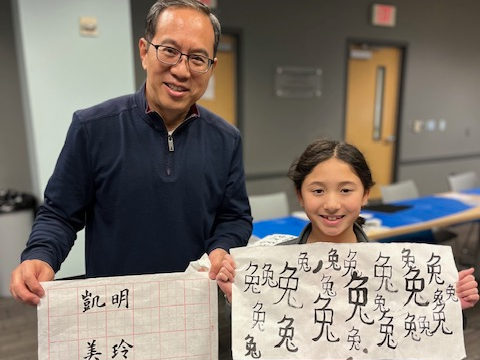 凱 明
美 玲
兔 兔 兔 兔 兔 兔 兔 兔
兔 兔 兔 兔 兔 兔
兔 兔 兔 兔 兔 兔
兔 兔 兔 兔